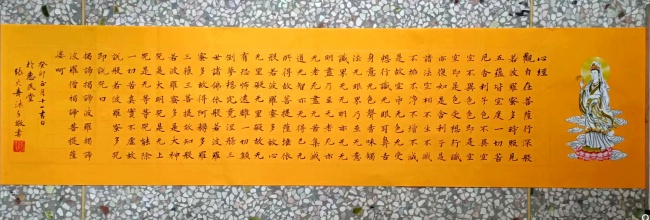 心經
觀自在菩薩行深般
若波羅蜜多時照見
五蘊皆空度一切苦
厄舍利子色不異空
空即是色受想行識
亦復如是舍利子是
諸法空相不生不滅
不垢不淨不增不減
是故空中无色无受
想行識无眼耳鼻舌
身意无色聲香味觸
法无眼界乃至无意
識界无无明亦无无
明盡乃至无老死亦
无老死盡无苦集滅
道无智亦无得以无
所得故菩提薩埵依
般若波羅蜜多故心
无罣礙无罣礙故无
有恐怖遠離一切顛
倒夢想究竟涅槃三
世諸佛依般若波羅
蜜多故得阿耨多羅
三藐三菩提故知般
若波羅蜜多是大神
咒是大明咒是无上
咒是无等等咒能除
一切苦真實不虛故
說般若波羅蜜多咒
即說咒曰
揭諦揭諦波羅揭諦
波羅僧揭諦菩提薩
婆呵
癸卯月十二日
於惠民堂
張沐手敬書